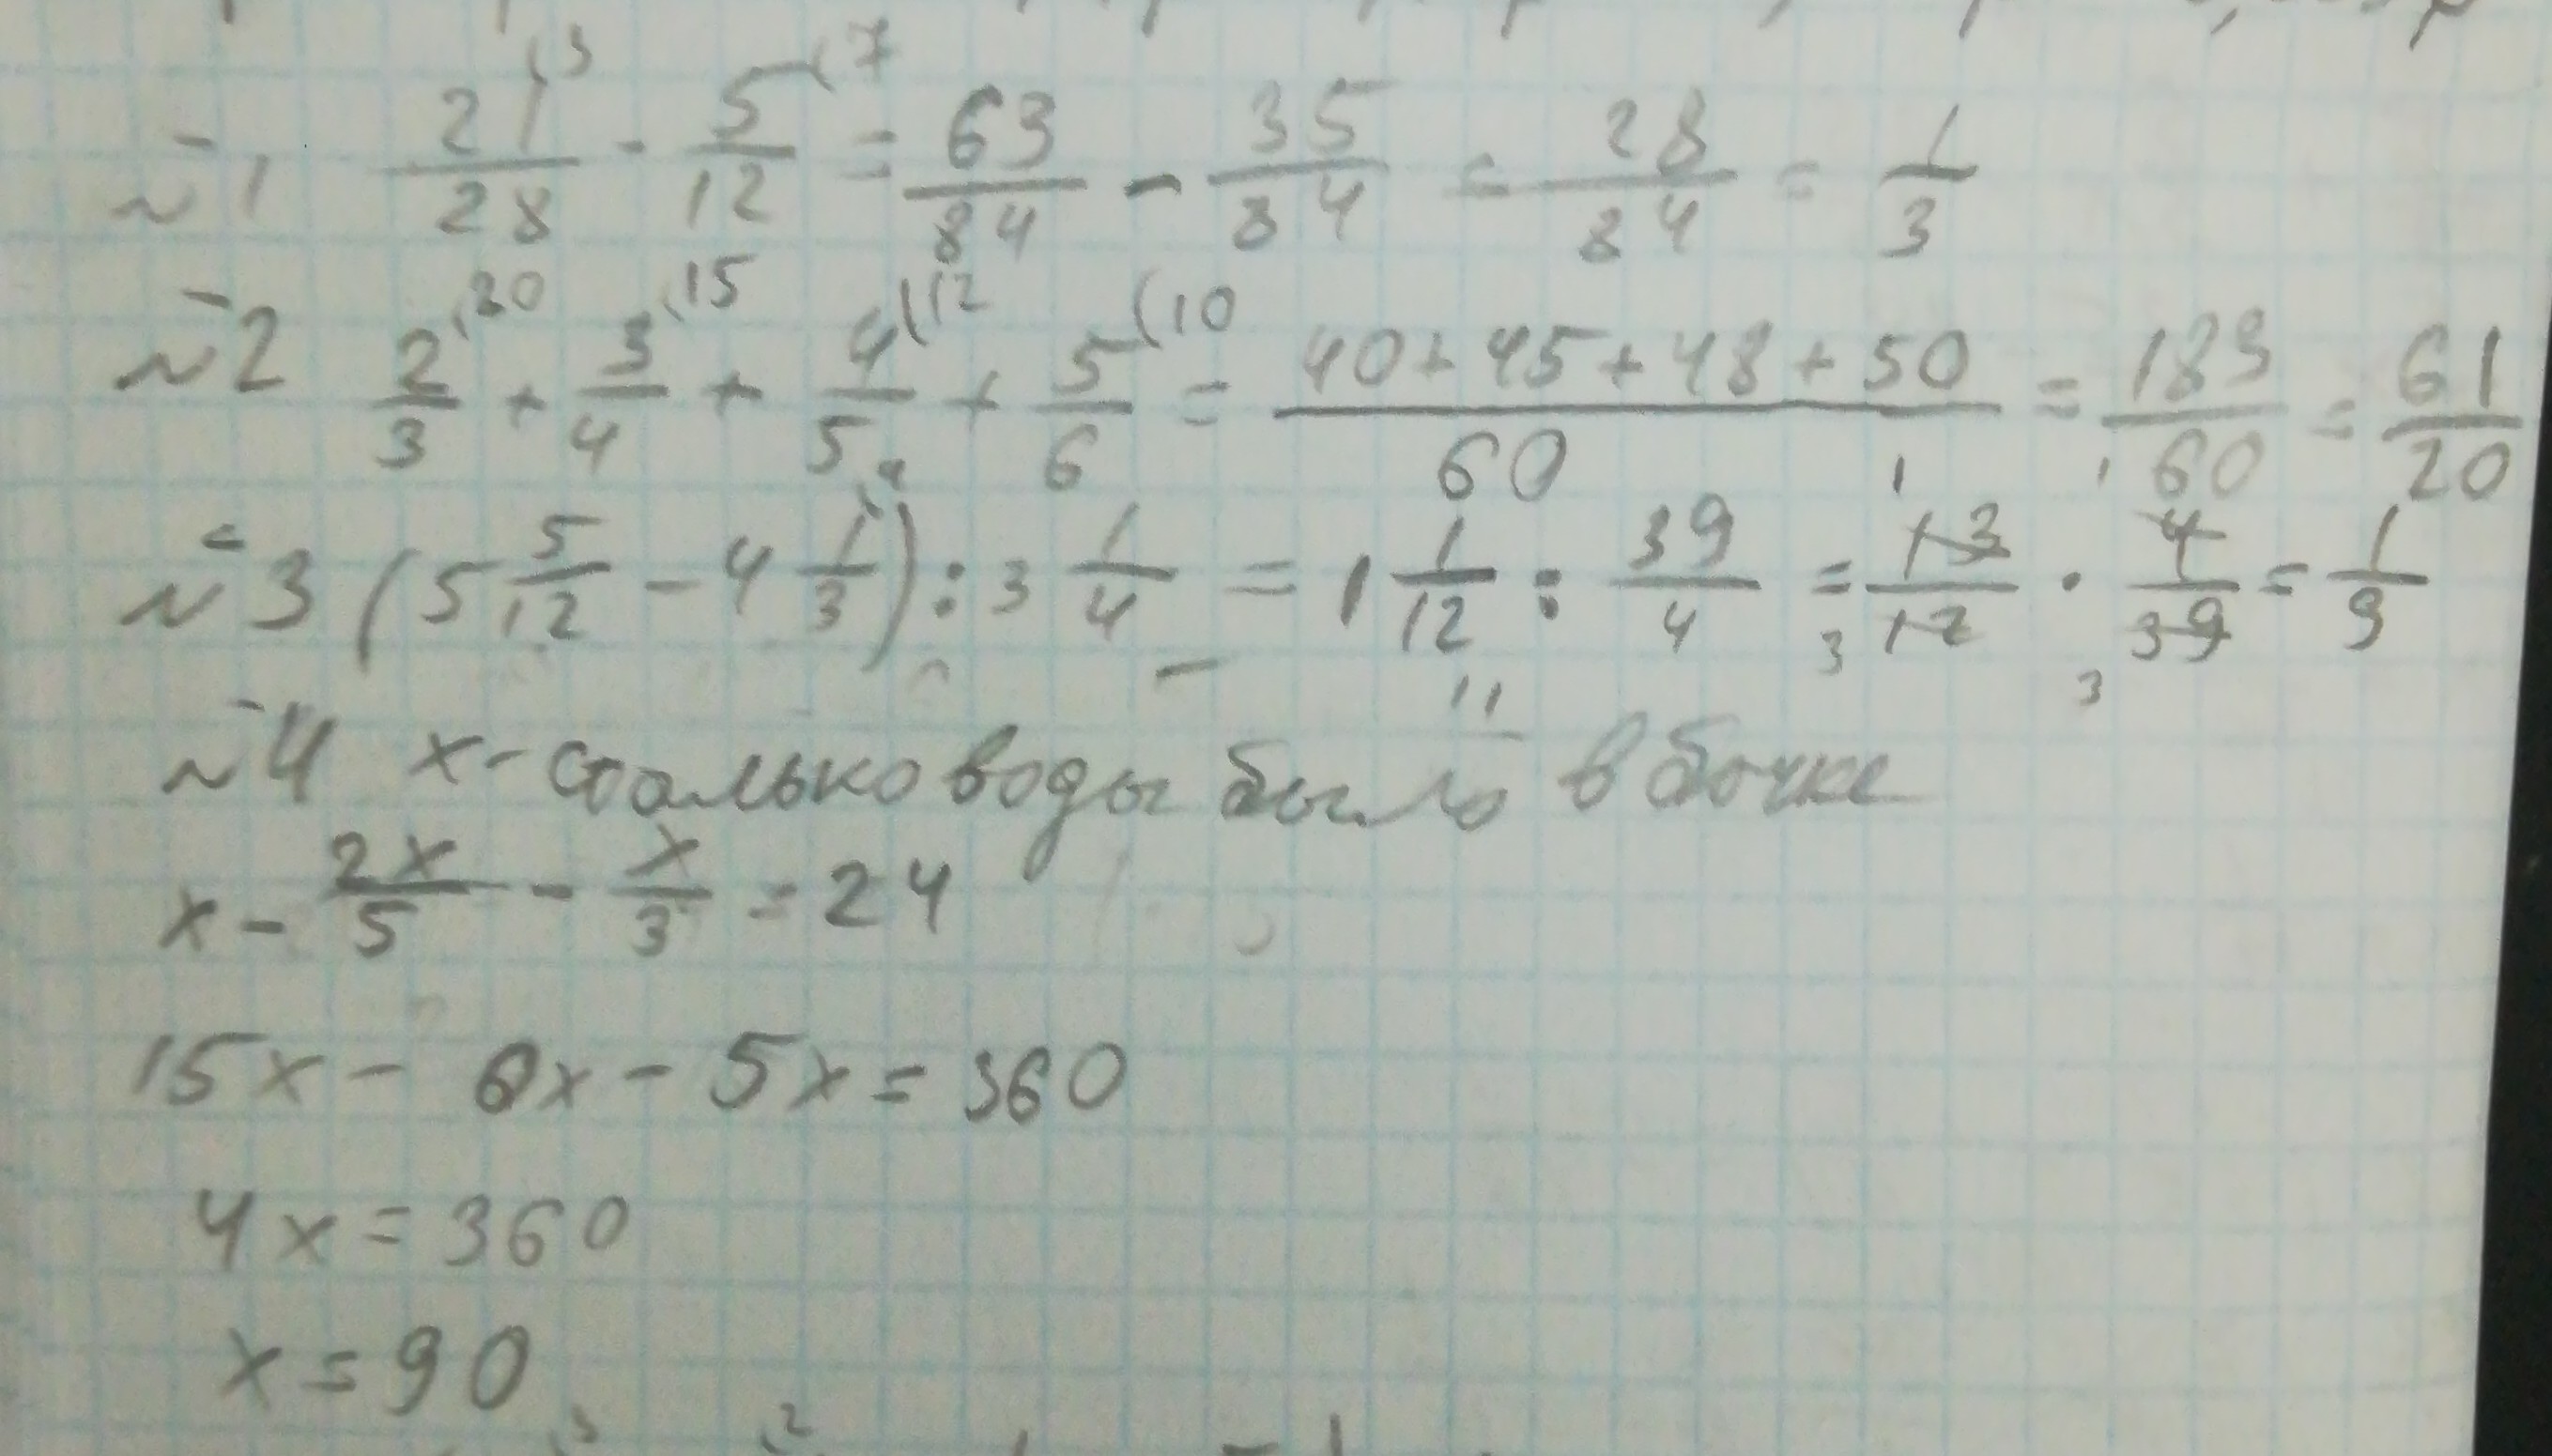 №1 21/28 (3 - 5/12 (7 = 63/84 - 35/84 = 28/84 = 1/3
№2 2/3 (20 + 3/4 (15 + 4/5 (12 + 5/6 (10 = 40+45+48+50/60 = 183/60 = 61/20
№3 (5 5/12 - 4 1/3 (4) : 3 1/4 = 1 1/12 : 39/4 = 13/12 · 4/39 = 1/9
№4 x - столько воды было в бочке
x - 2x/5 - x/3 = 24
15x - 6x - 5x = 360
4x = 360
x = 90